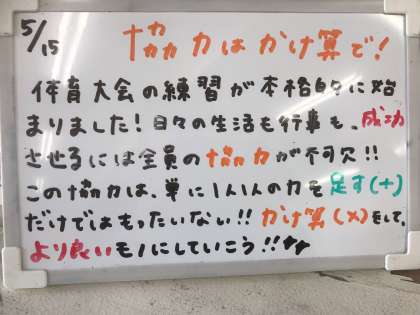 5/15
協力はかけ算で!
体育大会の練習が本格的に始
まりました!日々の生活も行事も、成功
させるには全員の協力が不可欠!!
この協力は、単に1人1人の力を足す(+)
だけではもったいない!!かけ算(×)をして、
より良いモノにしていこう!!